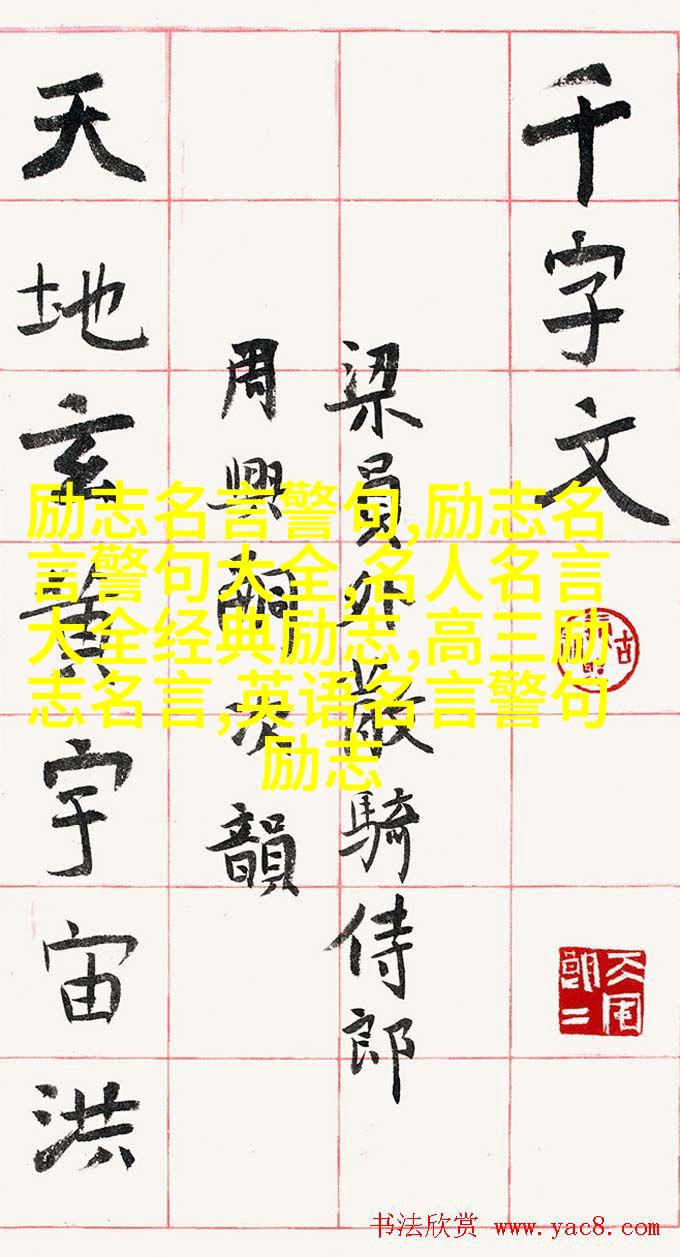 千字文
梁員外散騎侍郎
周興嗣次韻
天地玄黃宇宙洪
励志名言警句,励志名
言警句大全,名人名言
大全经典励志,高三励
志名言,英语名言警句
励志
书法欣赏 www.yac8.com